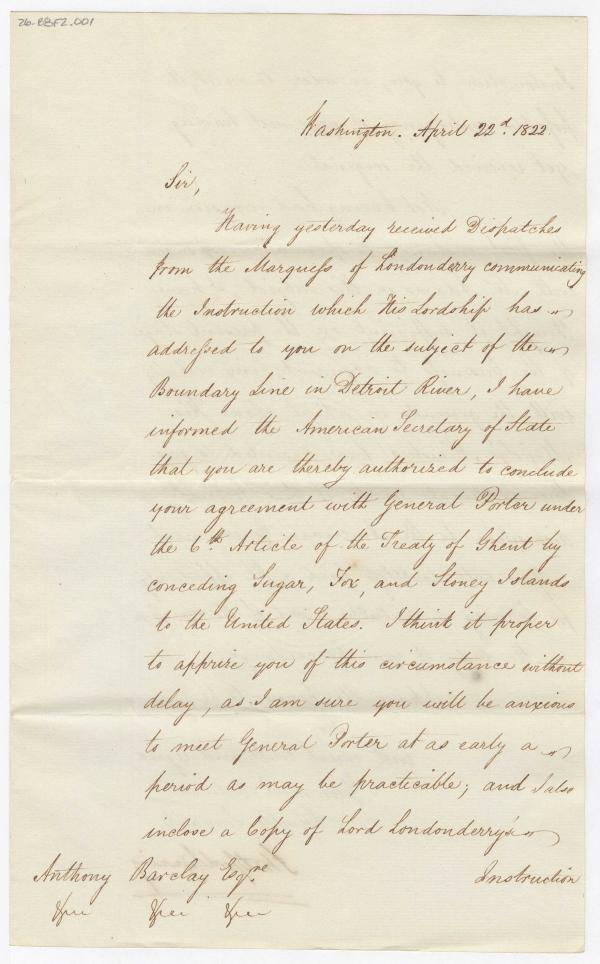 26-BBF2.001
Washington. April 22d. 1822.
Sir,
Having yesterday received Dispatches
from the Marquess of Londonderry communicating
the Instruction which His Lordship has
addressed to you on the subject of the
Boundary Line in Detroit River, I have
informed the American Secretary of State
that you are thereby authorized to conclude
your agreement with General Porter under
the 6th. Article of the Treaty of Ghent by
conceding Sugar, Fox, and Stoney Islands
to the United States. I think it proper
to apprize you of this circumstance without
delay, as I am sure you will be anxious
to meet General Porter at as early a
period as may be practicable; and I also
inclose a Copy of Lord Londonderry's
Anthony Barclay Esqre. Instruction
&c. &c. &c.